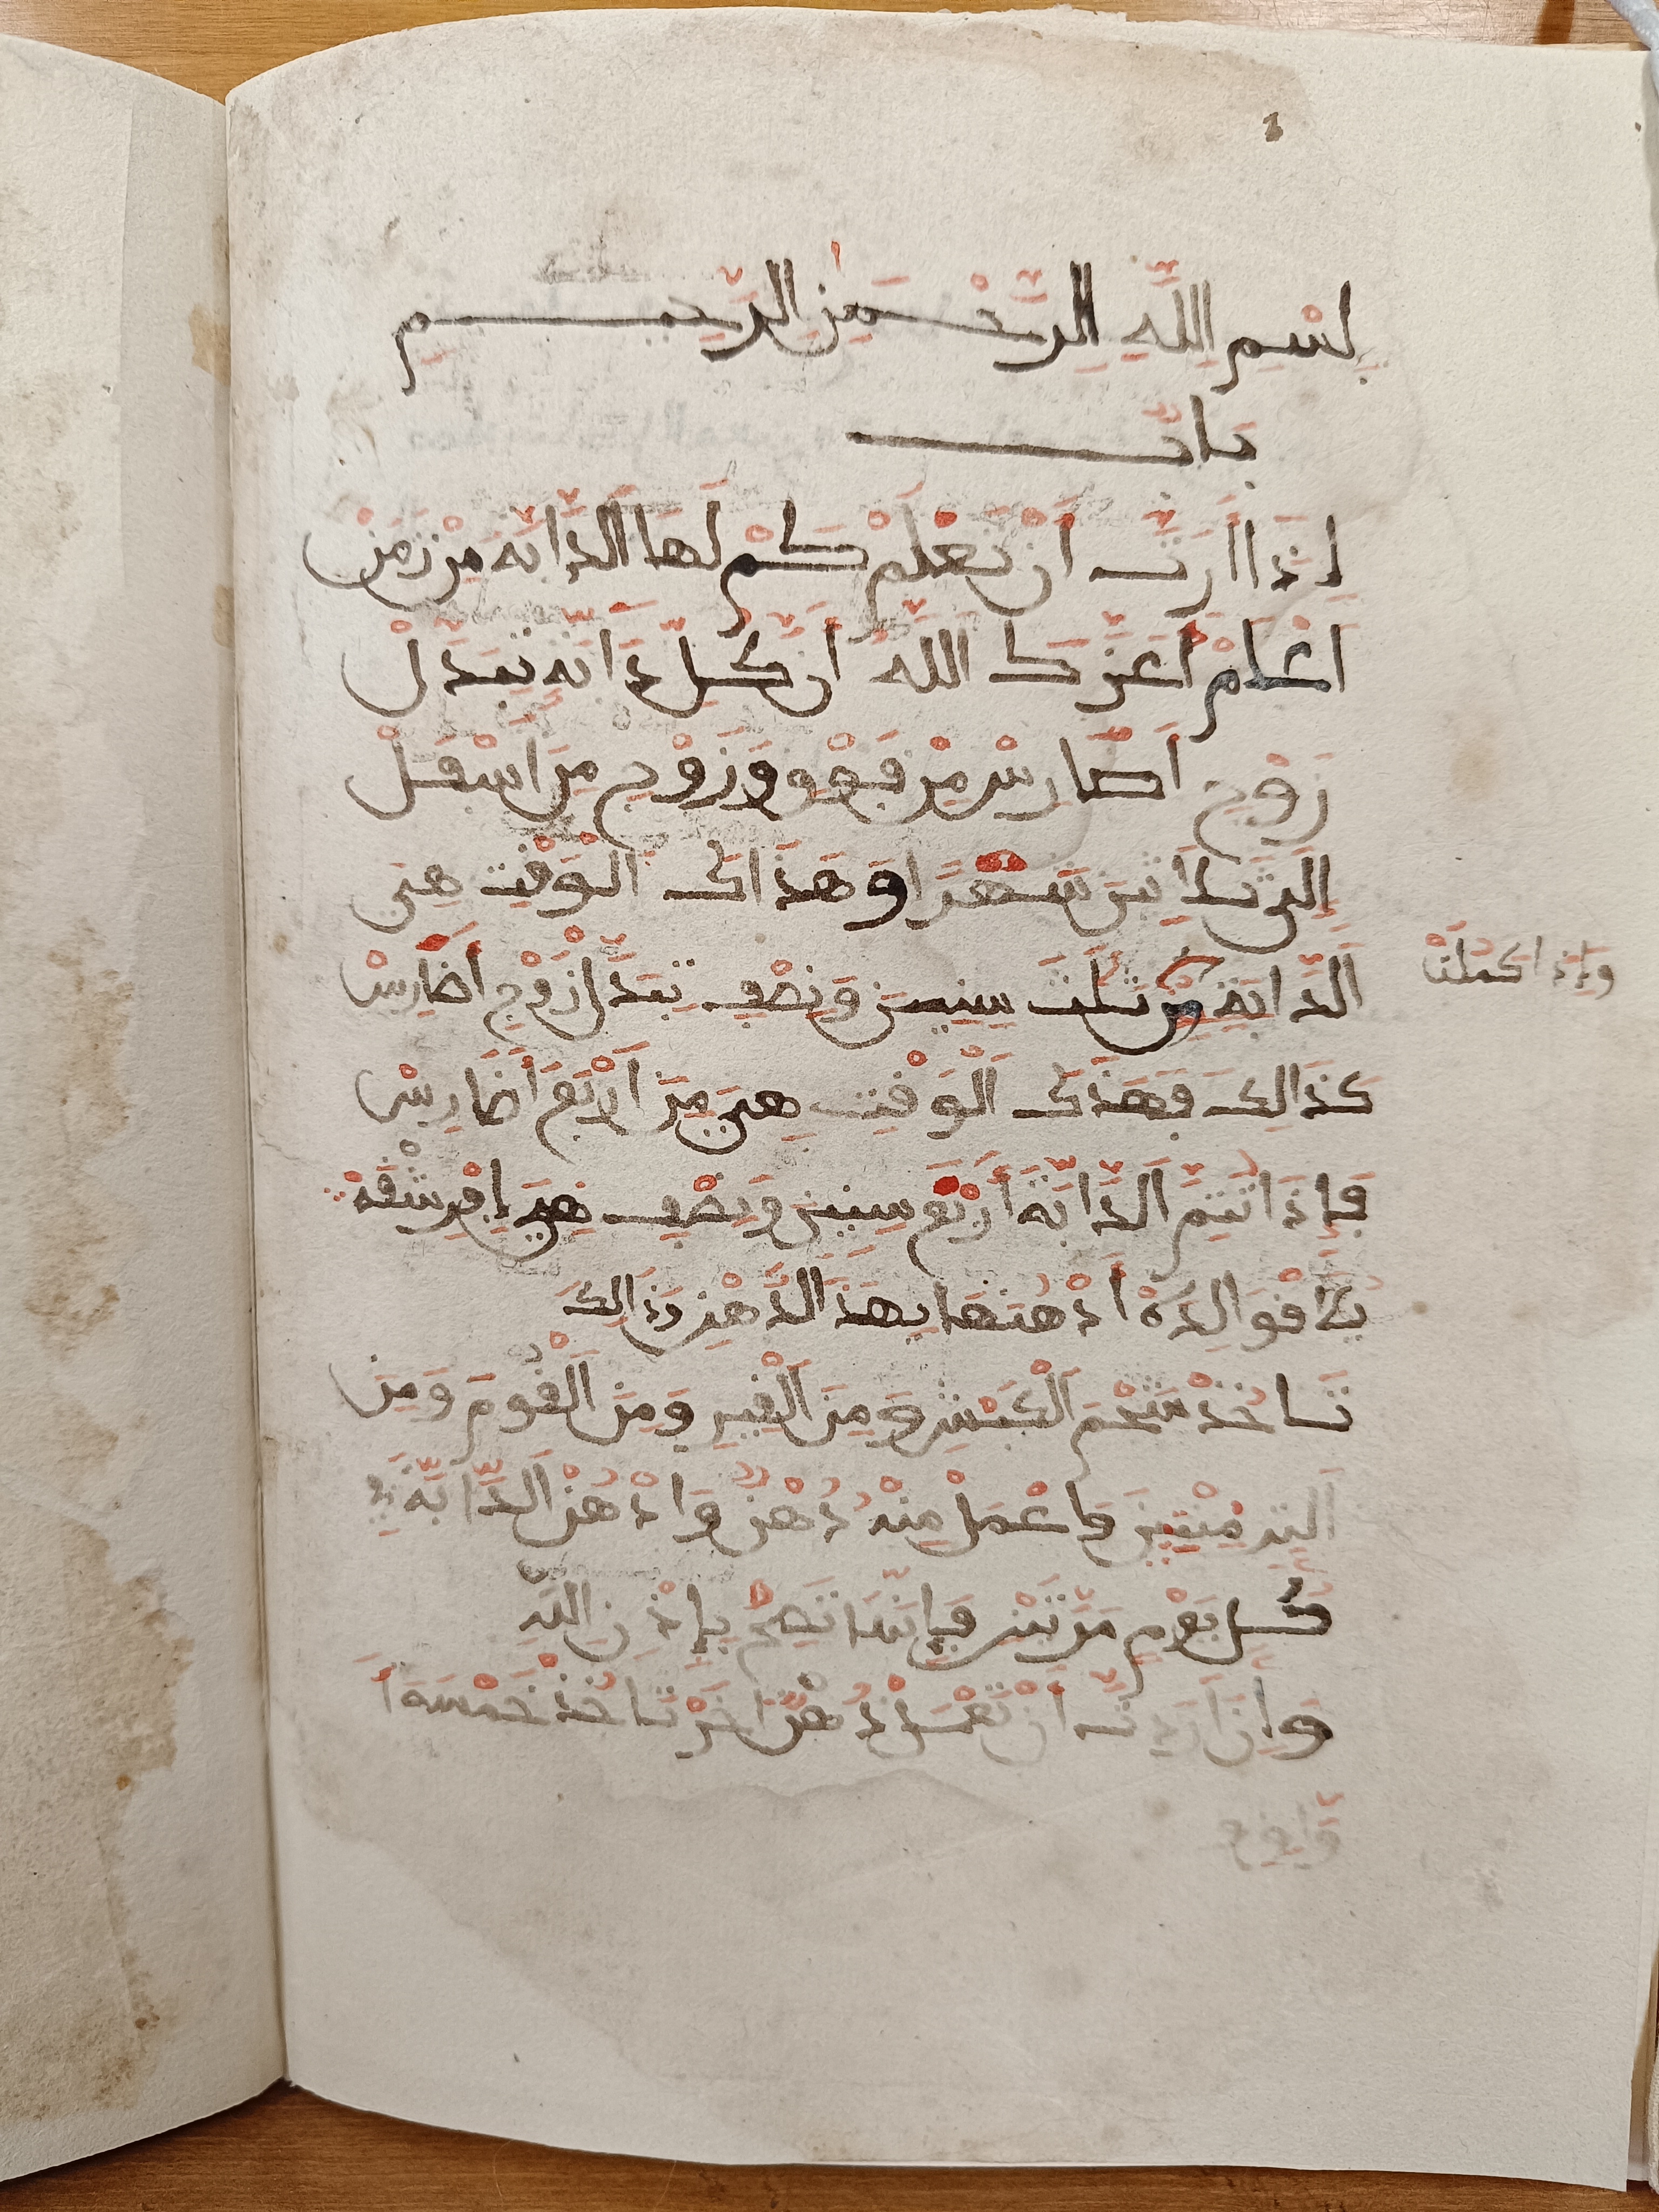 بِسْمِ اللَّهِ الرَّحْمَٰنِ الرَّحِيمِ
بَابٌ
إِذَا ارَتَّ أَنْ تَعْلَمْ كَمْ لَهَا الدَّابَّه مِنْ زَمَنْ
اَعْلَمْ أَعَزَّكَ اللَّهُ أَنَّ كُلَّ دَابَّه تُبَدَّلْ
زَوْج اَضَارِسْ مِنْ فَوْق وَزَوْج مِنَ اسْفَلْ
إِلَى ثَلَاثِينَ شَهْرًا وَهَذَاكَ الْوَقْت هِيَ
وَإِذَا كَمَلَتْ
الدَّابَّة مِنْ ثَلَث سِنِينَ وَنِصْف تُبَدَّل زَوْج اَضَارِسْ
كَذَالِكَ فَهَذَكَ الْوَقْت هِيَ مِنَ اَرْبَع اَضَارِسْ
فَإِذَا تَتِمّ الدَّابَّة أَرْبَع سِنِينَ وَنِصْف هِيَ
اَدْهُنْهَا بِهَذَ الدُّهْن وَذَالِكَ
تَاخُذْ شَحْم الْكَبْش وَمِنَ الْقِير وَمِنَ الْثُوم وَمِنَ
فَاعْمَلْ مِنْهُ دُهْنٌ وَادْهُنْ الدَّابَّة
كُل يَوْم مَرَّتَيْن فَإِنَّهَا تَصِحّ بِإِذْنِ اللَّهِ
وَإِنَ ارَدتَّ أَنْ تَعْمَلْ دُهْنٌ اخَرْ تَاخُذْ خَمْسَة أَ